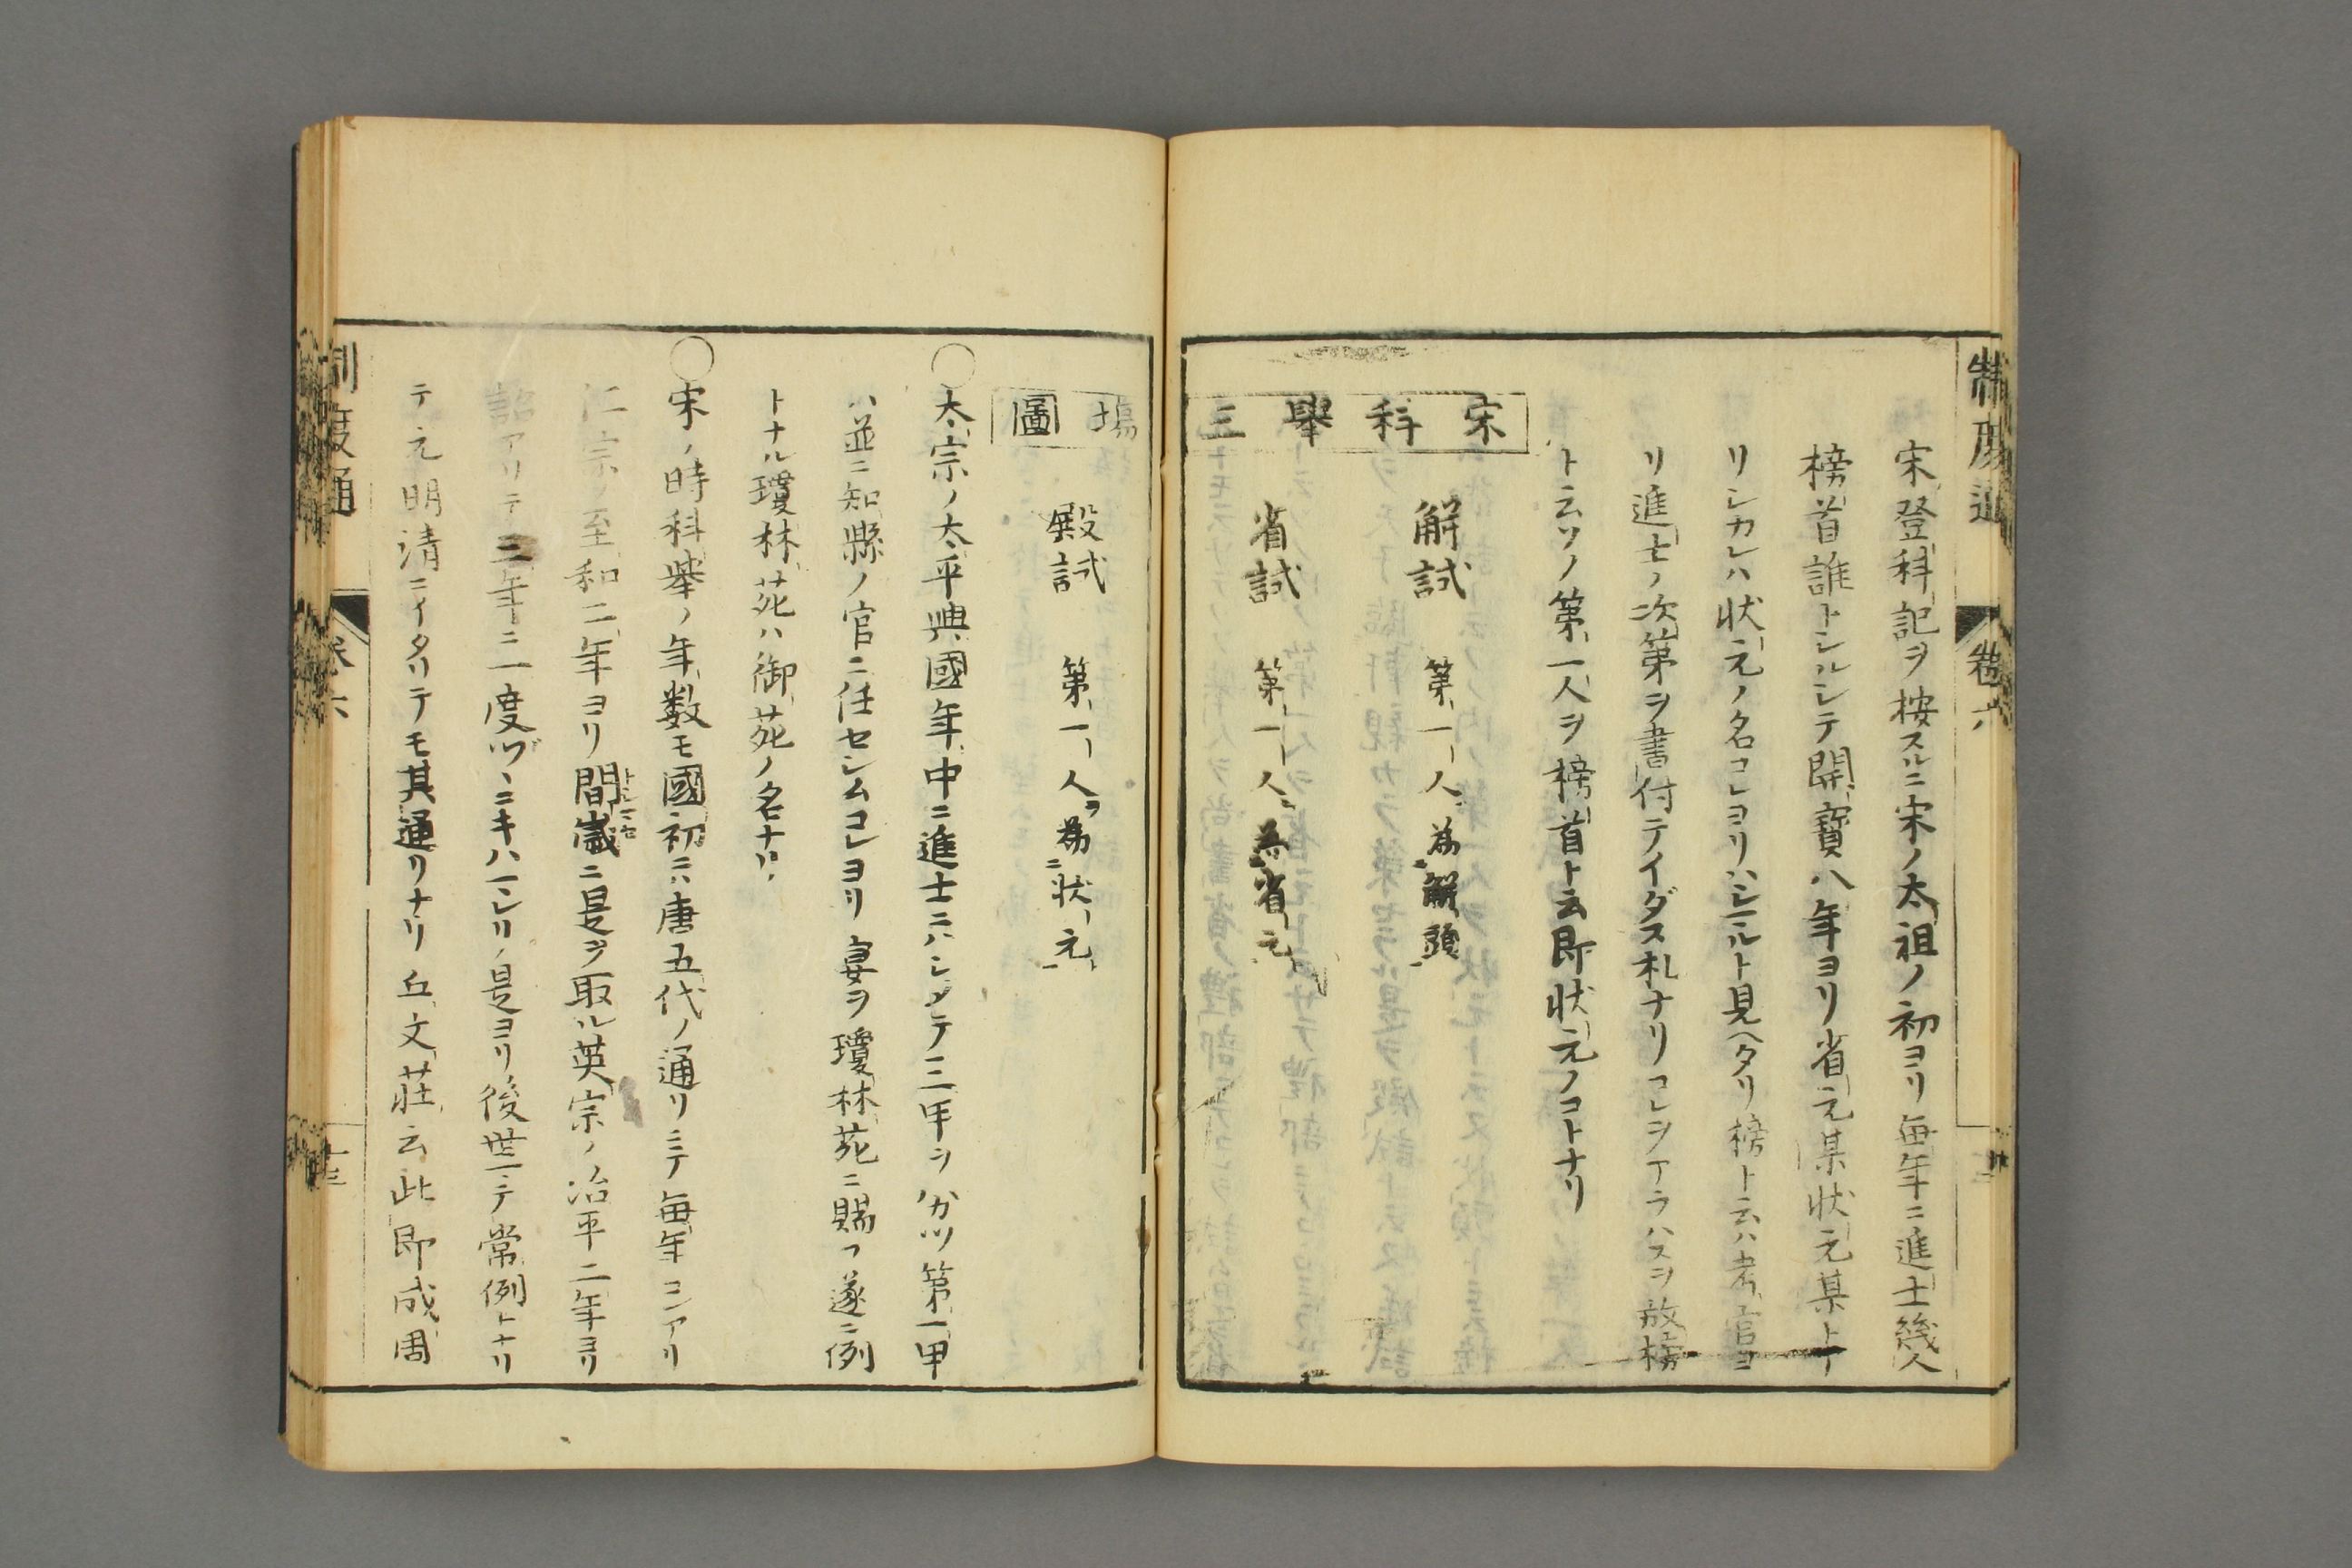 制度通
卷六
宋登科記ヲ按スルニ宋ノ太祖ノ初ヨリ毎年ニ進士幾人
榜首誰トシルシテ開寳八年ヨリ省元某状元某トア
リシカレハ状元ノ名コレヨリハシマルト見ヘタリ榜ト云ハ考官ヨ
リ進士ノ次第ヲ書付テイダス札ナリコレヲアラハスヲ放榜
ト云ソノ第一人ヲ榜首ト云即状元ノコトナリ
宋科舉三
解試　第一人為解頭
省試　第一人為省元
塲圖
殿試　第一人ヲ為ニ状元
〇太宗ノ太平興國年中ニ進士ニハシメテ三甲ヲ分ツ第一甲
ハ並ニ知縣ノ官ニ任セシムコレヨリ宴ヲ瓊林苑ニ賜フ遂ニ例
トナル瓊林苑ハ御苑ノ名ナリ
〇宋ノ時科舉ノ年数モ國初ニハ唐五代ノ通リニテ毎年コレアリ
仁宗ノ至和二年ヨリ間歳ニ是ヲ取ル英宗ノ治平二年ヨリ
詔アリテ三年ニ一度ヅヽニキハマレリ是ヨリ後世マテ常例トナリ
テ元明清ニイタリテモ其通リナリ丘文莊云此即成周
制度通
卷六